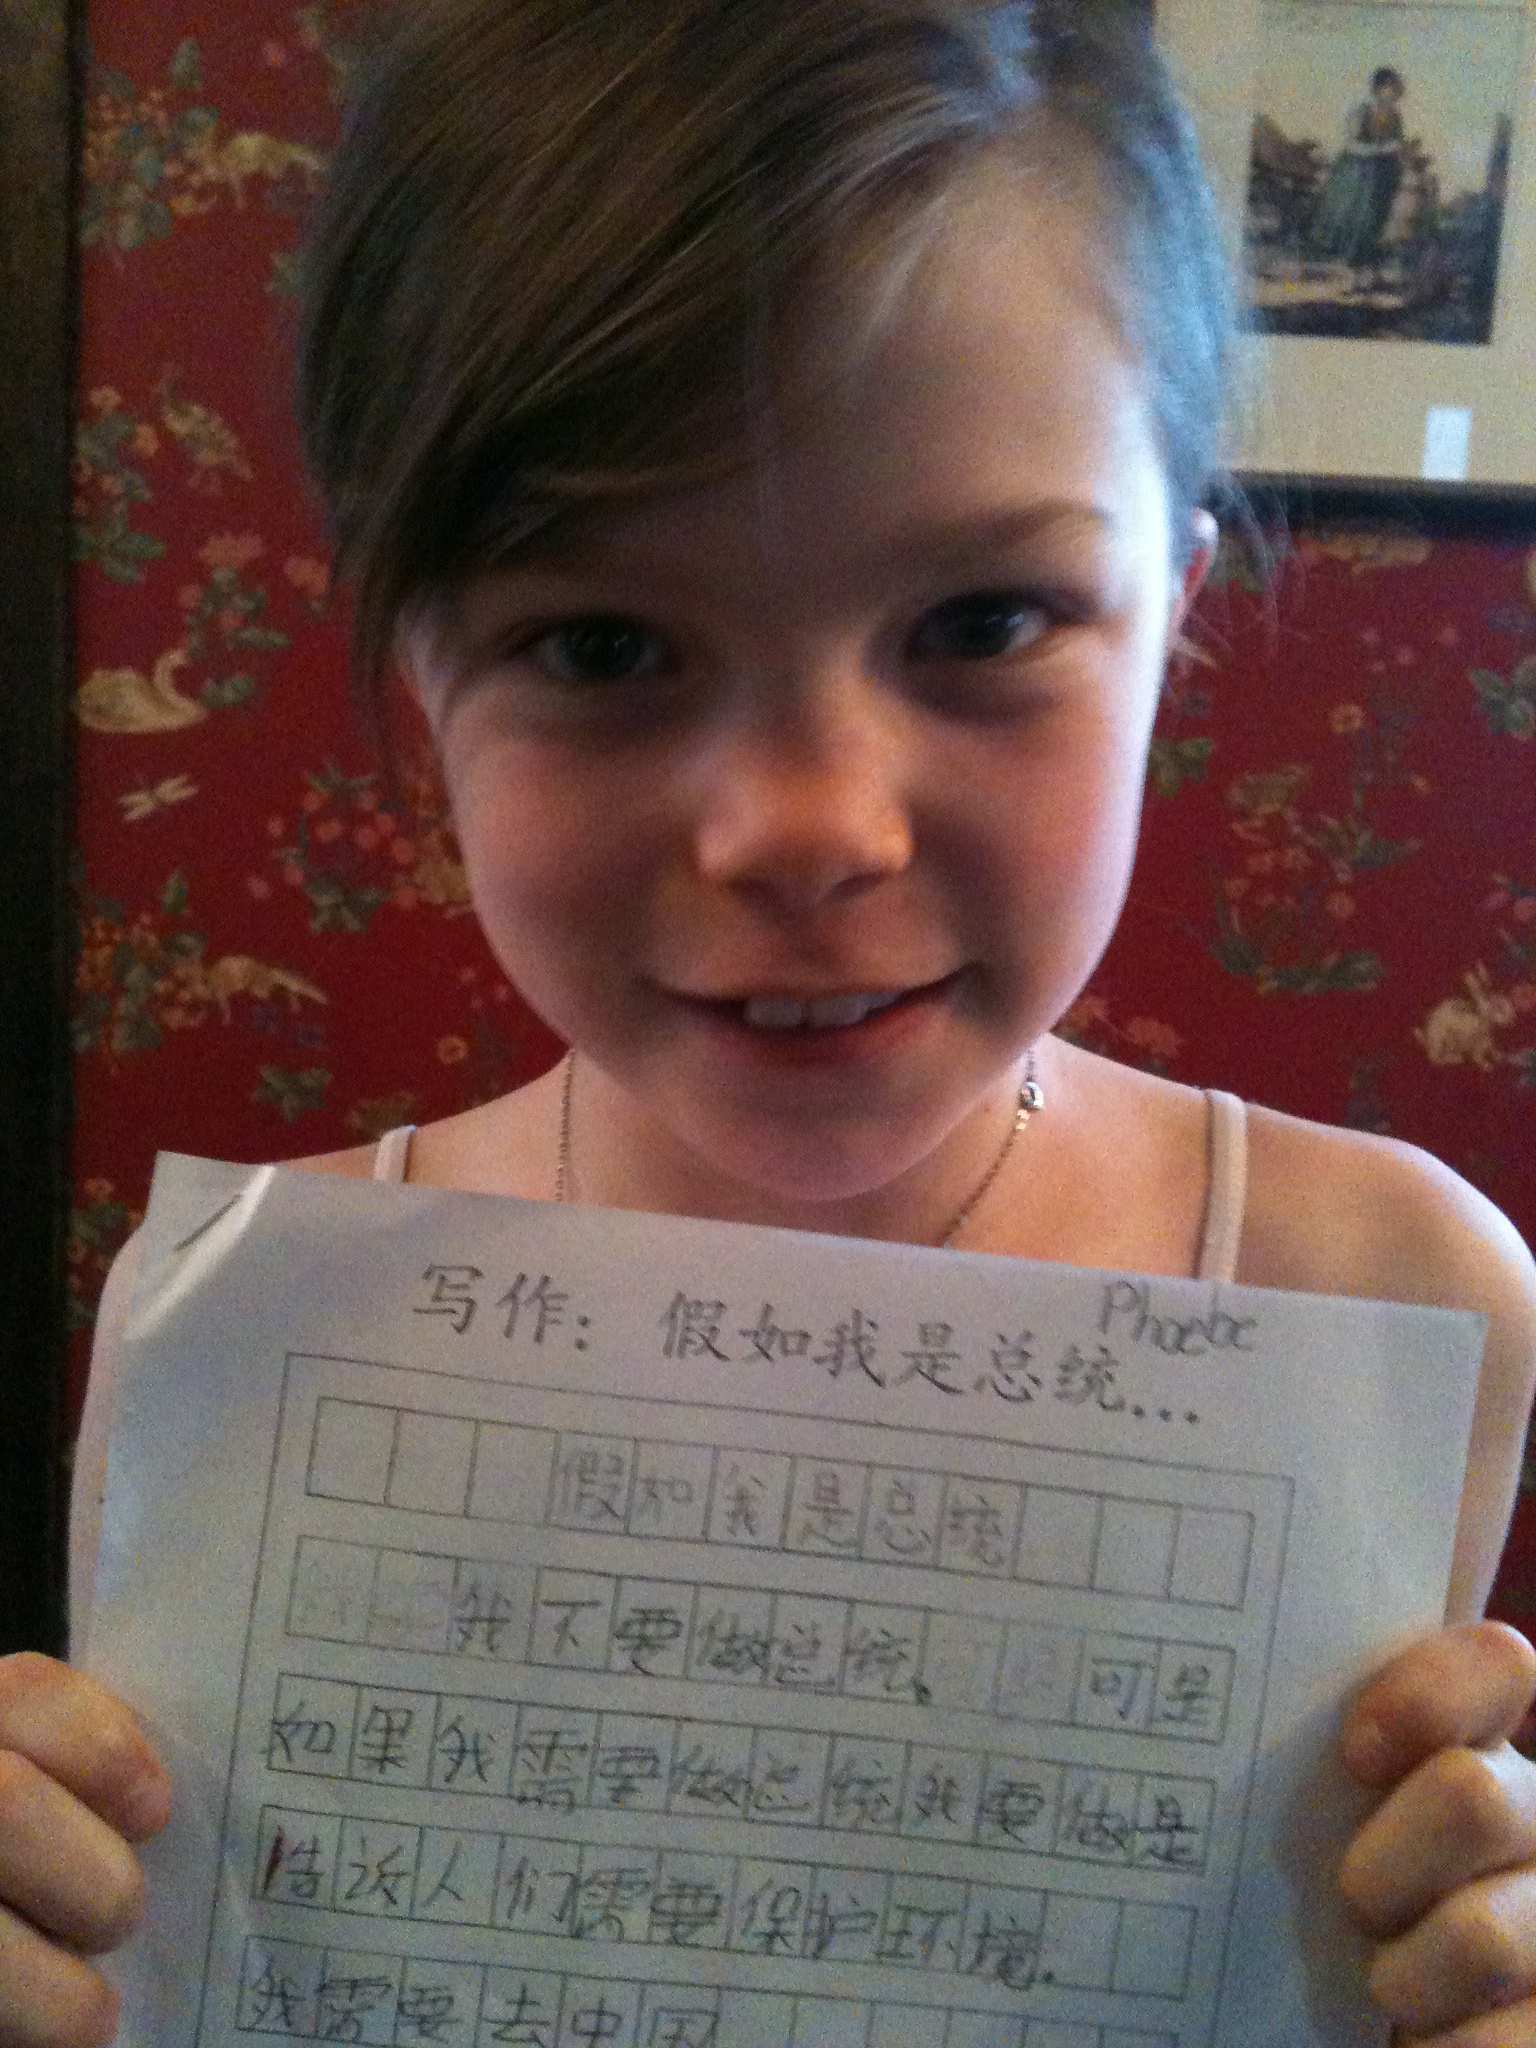 Phoebe
写作: 假如我是总统...
假如我是总统
我不要做总统。可是
如果我需要做总统我要做是
告诉人们需要保护环境.
我需要去中国